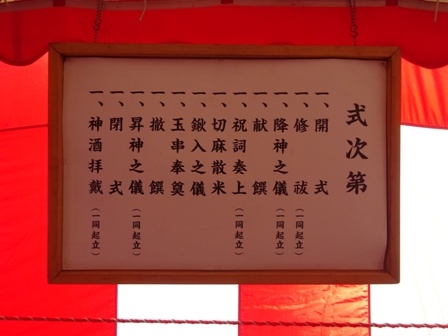 式次第
一、開式
一、修祓（一同起立）
一、降神之儀（一同起立）
一、献饌
一、祝詞奏上（一同起立）
一、切麻散米
一、鍬入之儀
一、玉串奉奠
一、撤饌
一、昇神之儀（一同起立）
一、閉式
一、神酒拝戴（一同起立）